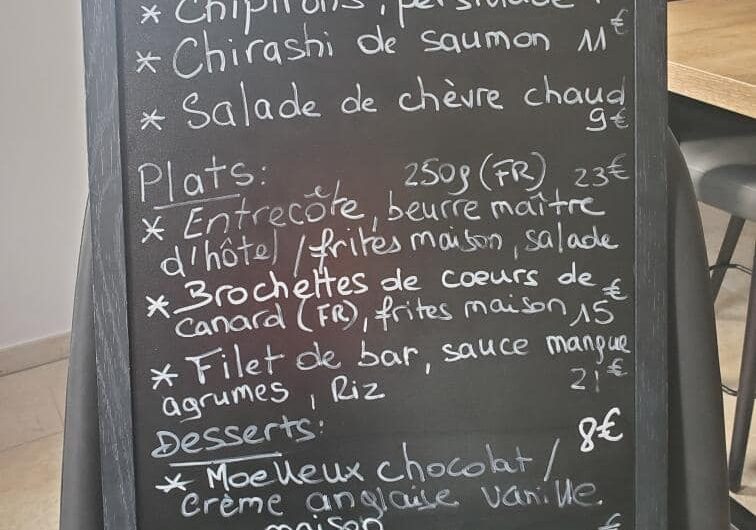 * Chipirons, persillade
* Chirashi de saumon 11€
* Salade de chèvre chaud
9€
Plats: 250g (FR) 23€
* Entrecôte, beurre maître
d'hôtel / frites maison, salade
* Brochettes de coeurs de €
canard (FR), frites maison 15
* Filet de bar, sauce mangue
agrumes, Riz 21€
Desserts: 8€
* Moelleux chocolat /
crème anglaise vanille
maison €